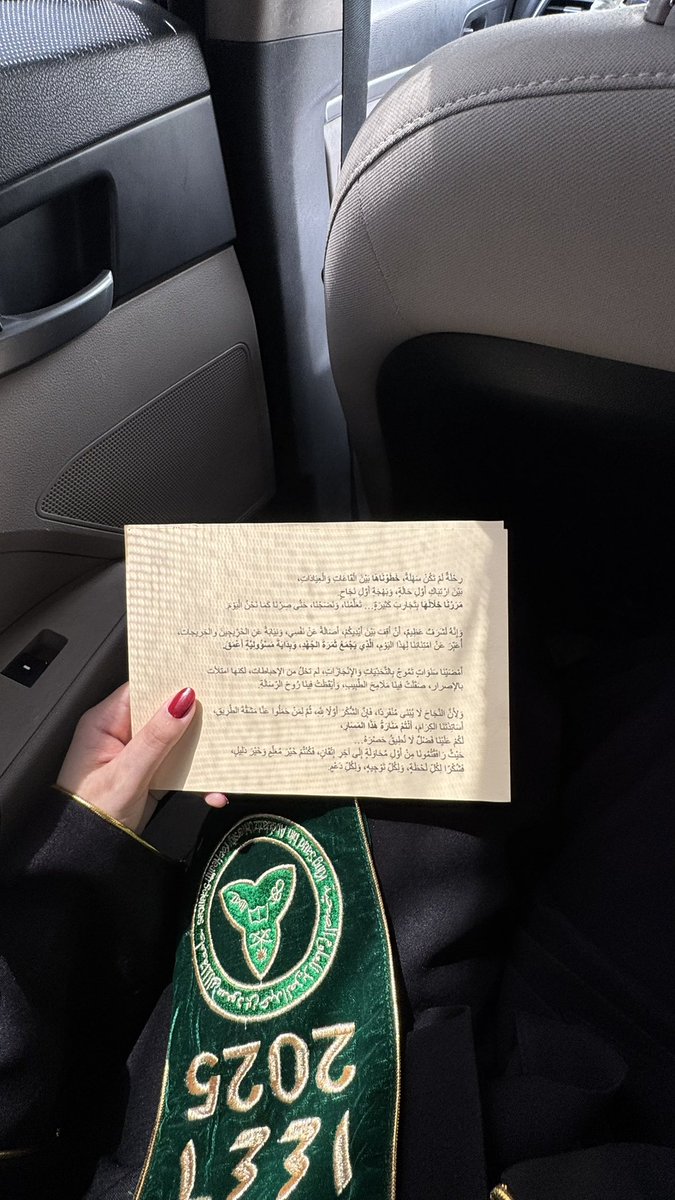 رِحْلَةٌ لَمْ تَكُنْ سَهْلَةً، خَطَوْنَاهَا بَيْنَ الْقَاعَاتِ وَالْعِيَادَاتِ،
بَيْنَ ارْتِبَاكِ أَوَّلِ حَالَةٍ، وَبَهْجَةِ أَوَّلِ نَجَاحٍ.
مَرَرْنَا خِلَالَهَا بِتَجَارِبَ كَثِيرَةٍ... تَعَلَّمْنَا، وَنَضَجْنَا، حَتَّى صِرْنَا كَمَا نَحْنُ الْيَوْمَ.
وَإِنَّهُ لَشَرَفٌ عَظِيمٌ، أَنْ أَقِفَ بَيْنَ أَيْدِيكُمْ، أَصَالَةً عَنْ نَفْسِي، وَنِيَابَةً عَنِ الْخِرِّيجِينَ وَالْخِرِّيجَاتِ،
أُعَبِّرُ عَنْ امْتِنَانِنَا لِهَذَا الْيَوْمِ، الَّذِي يَجْمَعُ ثَمَرَةَ الْجُهْدِ، وَبِدَايَةَ مَسْؤُولِيَّةٍ أَعْمَقَ.
أَمْضَيْنَا سَنَوَاتٍ تَمُوجُ بِالتَّحَدِّيَاتِ وَالْإِنْجَازَاتِ، لم تخلُ من الإحباطات، لكنها امتلأت
بالإصرار، صَقَلَتْ فِينَا مَلَامِحَ الطَّبِيبِ، وَأَيْقَظَتْ فِينَا رُوحَ الرِّسَالَةِ.
وَلِأَنَّ النَّجَاحَ لَا يُبْنَى مُنْفَرِدًا، فَإِنَّ الشُّكْرَ أَوَّلًا لِلَّهِ، ثُمَّ لِمَنْ حَمَلُوا عَنَّا مَشَقَّةَ الطَّرِيقِ.
أَسَاتِذَتَنَا الْكِرَامَ، أَنْتُمْ مَنَارَةُ هَذَا الْمَسَارِ،
لَكُمْ عَلَيْنَا فَضْلٌ لَا نُطِيقُ حَصْرَهُ
حَيْثُ رَافَقْتُمُونَا مِنْ أَوَّلِ مُحَاوَلَةٍ إِلَى آخِرِ إِتْقَانٍ، فَكُنْتُمْ خَيْرَ مُعَلِّمٍ وَخَيْرَ دَلِيلٍ،
فَشُكْرًا لِكُلِّ لَحْظَةٍ، وَلِكُلِّ تَوْجِيهٍ، وَلِكُلِّ دَعْمٍ.
King Saud bin Abdulaziz University for Health Sciences
2025
١٤٤